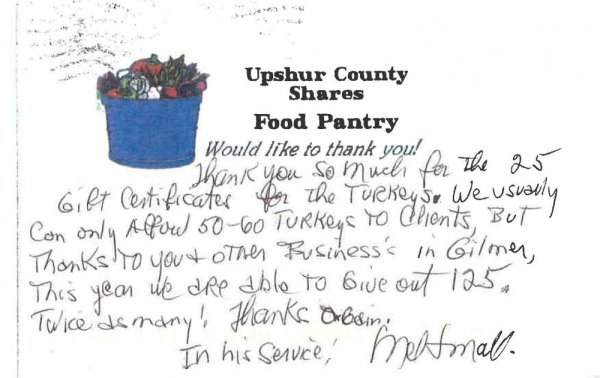 Upshur County
Shares
Food Pantry
Would like to thank you!
Thank you so much for the 25
Gift Certificates for the Turkeys. We usually
Can only Afford 50-60 Turkeys to Clients, But
Thanks to you & other Business's in Gilmer,
This year we are able to Give out 125.
Twice as many! Thanks
In his Service,